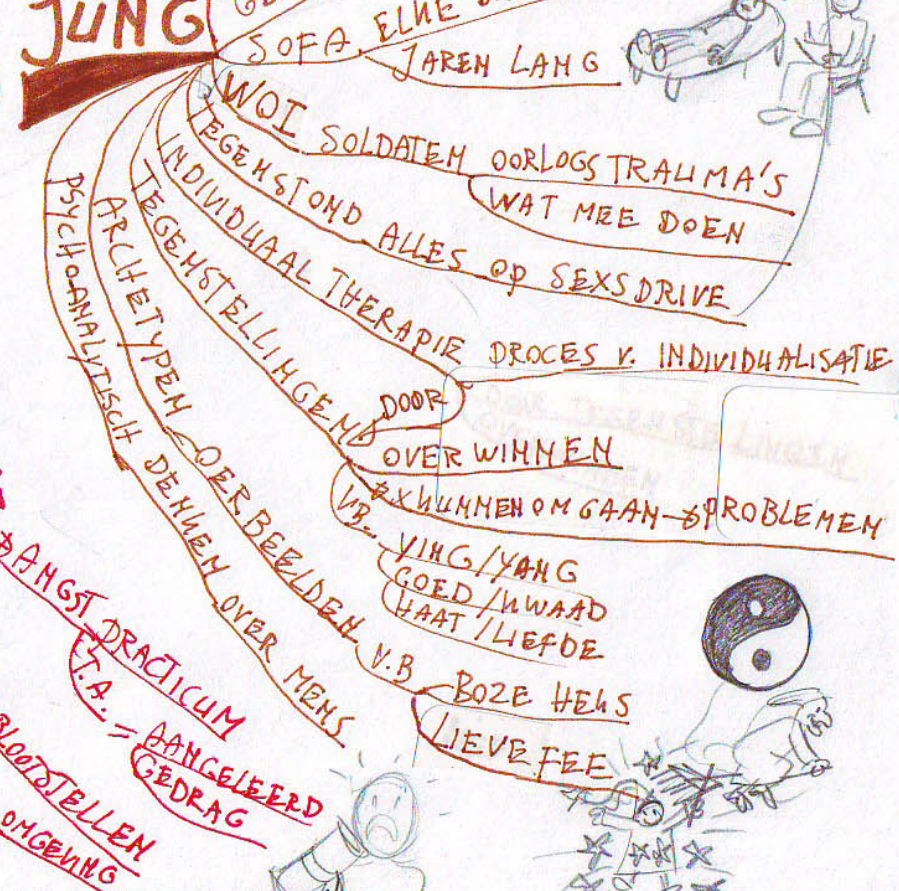 JUNG
SOFA ELKE
JAREN LANG
WOI
SOLDATEN OORLOGSTRAUMA'S
WAT MEE DOEN
TEGENSTOND ALLES OP SEXSDRIVE
INDIVIDUAAL THERAPIE
PROCES V. INDIVIDUALISATIE
DOOR
TEGENSTELLINGEN
OVERWINNEN
KUNNEN OMGAAN → PROBLEMEN
VB.
YING/YANG
GOED/KWAAD
HAAT/LIEFDE
ARCHETYPEN OERBEELDEN V.B
BOZE HEKS
LIEVE FEE
PSYCHOANALYTISCH DENKEN OVER MENS
ANGST PRACTICUM
T.A. =
AANGELEERD
GEDRAG
BLOOTSTELLEN
OMGEVING